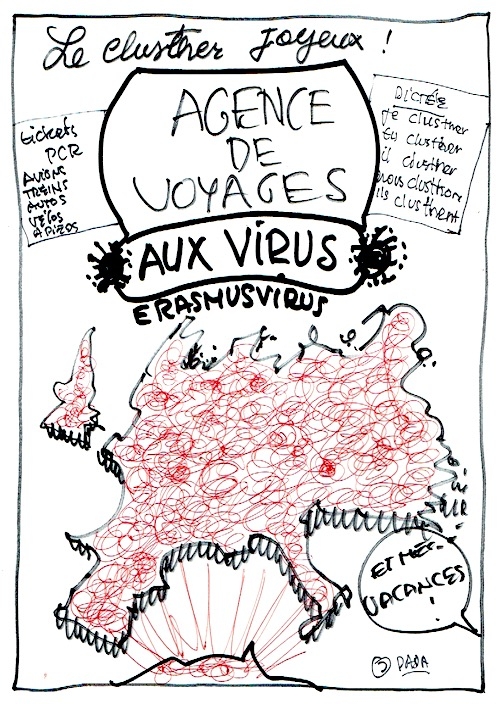 Le clusther joyeux !
AGENCE
DE
VOYAGES
AUX VIRUS
ERASMUSVIRUS
tickets
PCR
AVIONS
TRAINS
AUTOS
VÉLOS
A PIEDS
DICTÉE
je clusther
tu clusther
il clusther
nous clusthons
ils clusthent
ET MES
VACANCES
!
DADA